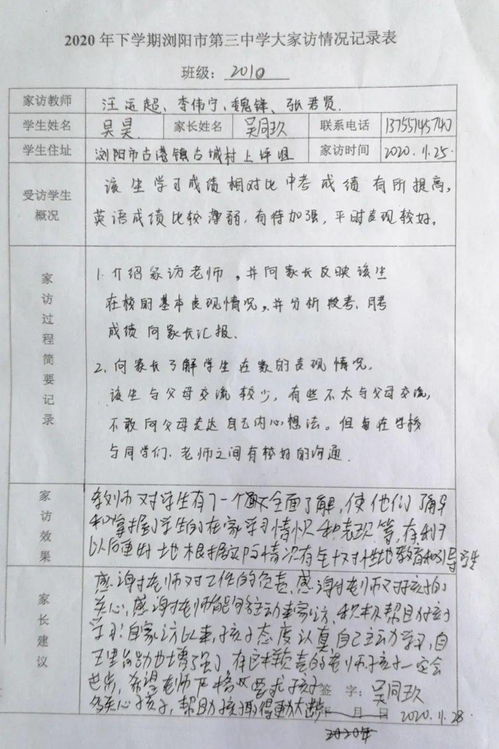 2020年下学期浏阳市第三中学大家访情况记录表
班级：2010
家访教师 汪运超、李伟宁、魏锋、张君贤
学生姓名 吴昊 家长姓名 吴同玖 联系电话 13755145740
学生住址 浏阳市古港镇古城村上坪组 家访时间 2020.11.25.
受访学生概况
该生学习成绩相对比中考成绩有所提高，
英语成绩比较薄弱，有待加强，平时表现较好。
家访过程简要记录
1.介绍家访老师，并向家长反映该生
在校的基本表现情况，并分析段考、月考
成绩向家长汇报。
2.向家长了解学生在家的表现情况。
该生与父母交流较少，有些不太与父母交流，
不敢向父母表达自己内心想法。但是在学校
与同学们、老师之间有较好的沟通。
家访效果
教师对学生有了一个全面了解，使他们了解
和掌握到学生的在家学习情况和表现等，有利于
以后更好地根据实际情况有针对性地教育和引导学生
家长建议
感谢老师对工作的负责，感谢老师对孩子的
关心，感谢老师能主动来家访，积极帮助孩子
学习！自家访以来，孩子态度认真，自己主动学习，自
也增强了，在这样负责的老师孩子一定会
希望老师严格要求孩子
多关心孩子，帮助孩子取得更大
签字：吴同玖
年 月 日 2020.11.28
2020年